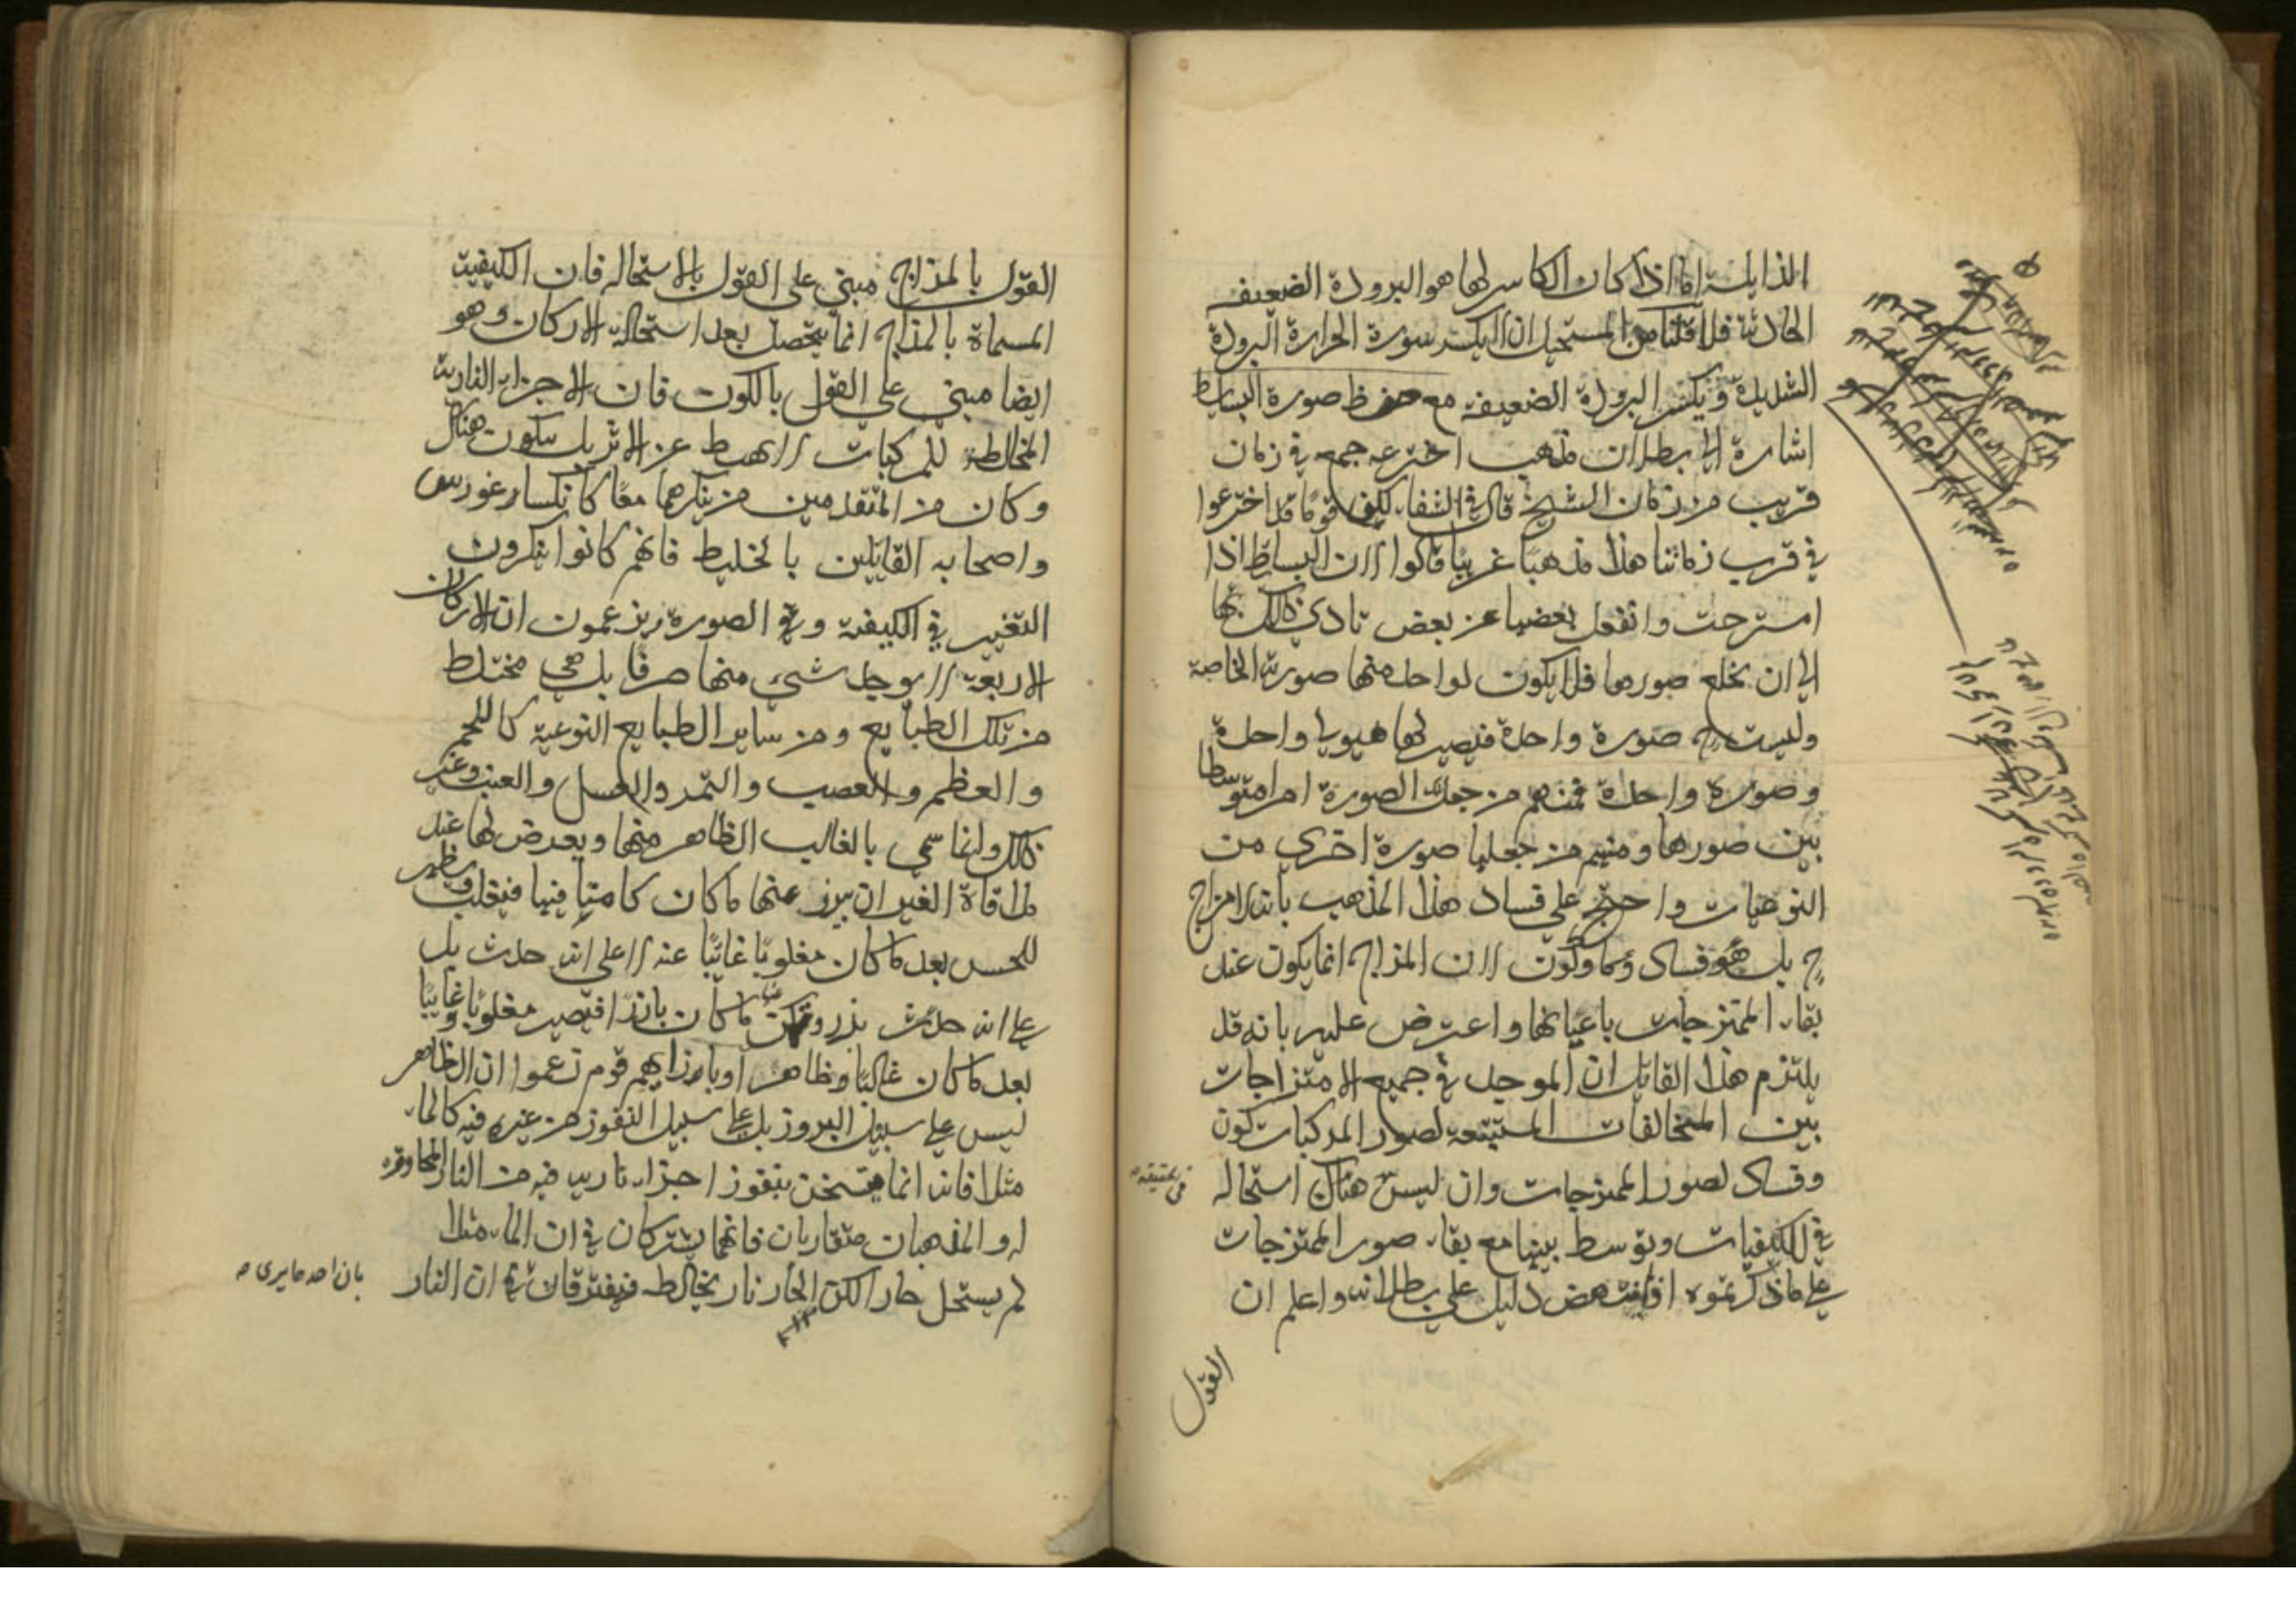 الذايلة اما اذا كان الكاسر لها هو البرودة الضعيف
الحادثة فلا قلنا من المستحيل ان لا يكسر سورة الحرارة البرودة
الشديدة ويكسر البرودة الضعيفة مع حفظ صورة البسايط
اشارة الى بطلان مذهب اخترعه جمع في زمان
قريب من زمان الشيخ قال في الشفاء لكن قوما قد اخترعوا
في قرب زماننا هذا مذهبا غريبا قالوا ان البسايط اذا
امتزجت وانفعل بعضها عن بعض تادى ذلك بها
الى ان تخلع صورها فلا يكون لواحد منها صورته الخاصة
وليست ح صورة واحدة فيصير لها هيولى واحدة
وصورة واحدة فمنهم من جعل تلك الصورة امرا متوسطا
بين صورها ومنهم من جعلها صورة اخرى من
النوعيات واحتج على فساد هذا المذهب بانه لا مزاج
ح بل هو فساد وكون لان المزاج انما يكون عند
بقاء الممتزجات باعيانها واعترض عليه بانه قد
يلتزم هذا القايل ان الموجد في جميع الامتزاجات
بين المتخالفات المستتبعة لصور المركبات كون
وفساد لصور الممتزجات وان ليس هناك استحالة
في الكيفيات وتوسط بينها مع بقاء صور الممتزجات
على ما ذكرتموه دليل على بطلانه واعلم ان
القول
القول بالمزاج مبني على القول بالاستحالة فان الكيفية
المسماة بالمزاج انما يتحصل بعد استحالة الاركان وهو
ايضا مبني على القول بالكون فان الاجزاء النارية
المخالطة للمركبات لا تهبط عن الاثير بل يتكون هناك
وكان من المتقدمين من ينكرهما معا كانكساغورس
واصحابه القايلين بالخليط فانهم كانوا ينكرون
التغير في الكيفية وفي الصورة ويزعمون ان الاركان
الاربعة لا يوجد شيء منها صرفا بل هي مختلط
من تلك الطبايع ومن ساير الطبايع النوعية كاللحم
والعظم والعصب والتمر والعسل والعنب وغير
ذلك وانما سمي بالغالب الظاهر منها ويعرض لها عند
ملاقاة الغير ان يبرز عنها ما كان كامنا فيها فيغلب ويظهر
للحس بعد ما كان مغلوبا غائبا عنه لا على انه حدث بل
على انه حدث بروز ما كان بارزا فيصير مغلوبا وغايبا
بعد ما كان غالبا وظاهرا وبازايهم قوم زعموا ان الظاهر
ليس على سبيل البروز بل على سبيل النفوذ من غيره فيه كالماء
مثلا فانه انما يتسخن بنفوذ اجزاء نارية فيه من النار المجاورة
له والمذهبان متقاربان فانهما يشتركان في ان الماء مثلا
لم يستحل حارا لكن الحار نار يخالطه فيفترقان في ان النار
بان احدهما يرى